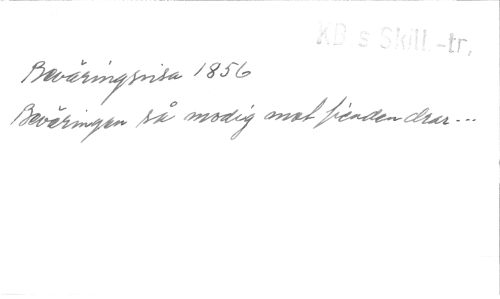 KB s Skill.-tr.
Beväringsvisa 1856
Beväringen så modig mot fienden drar...